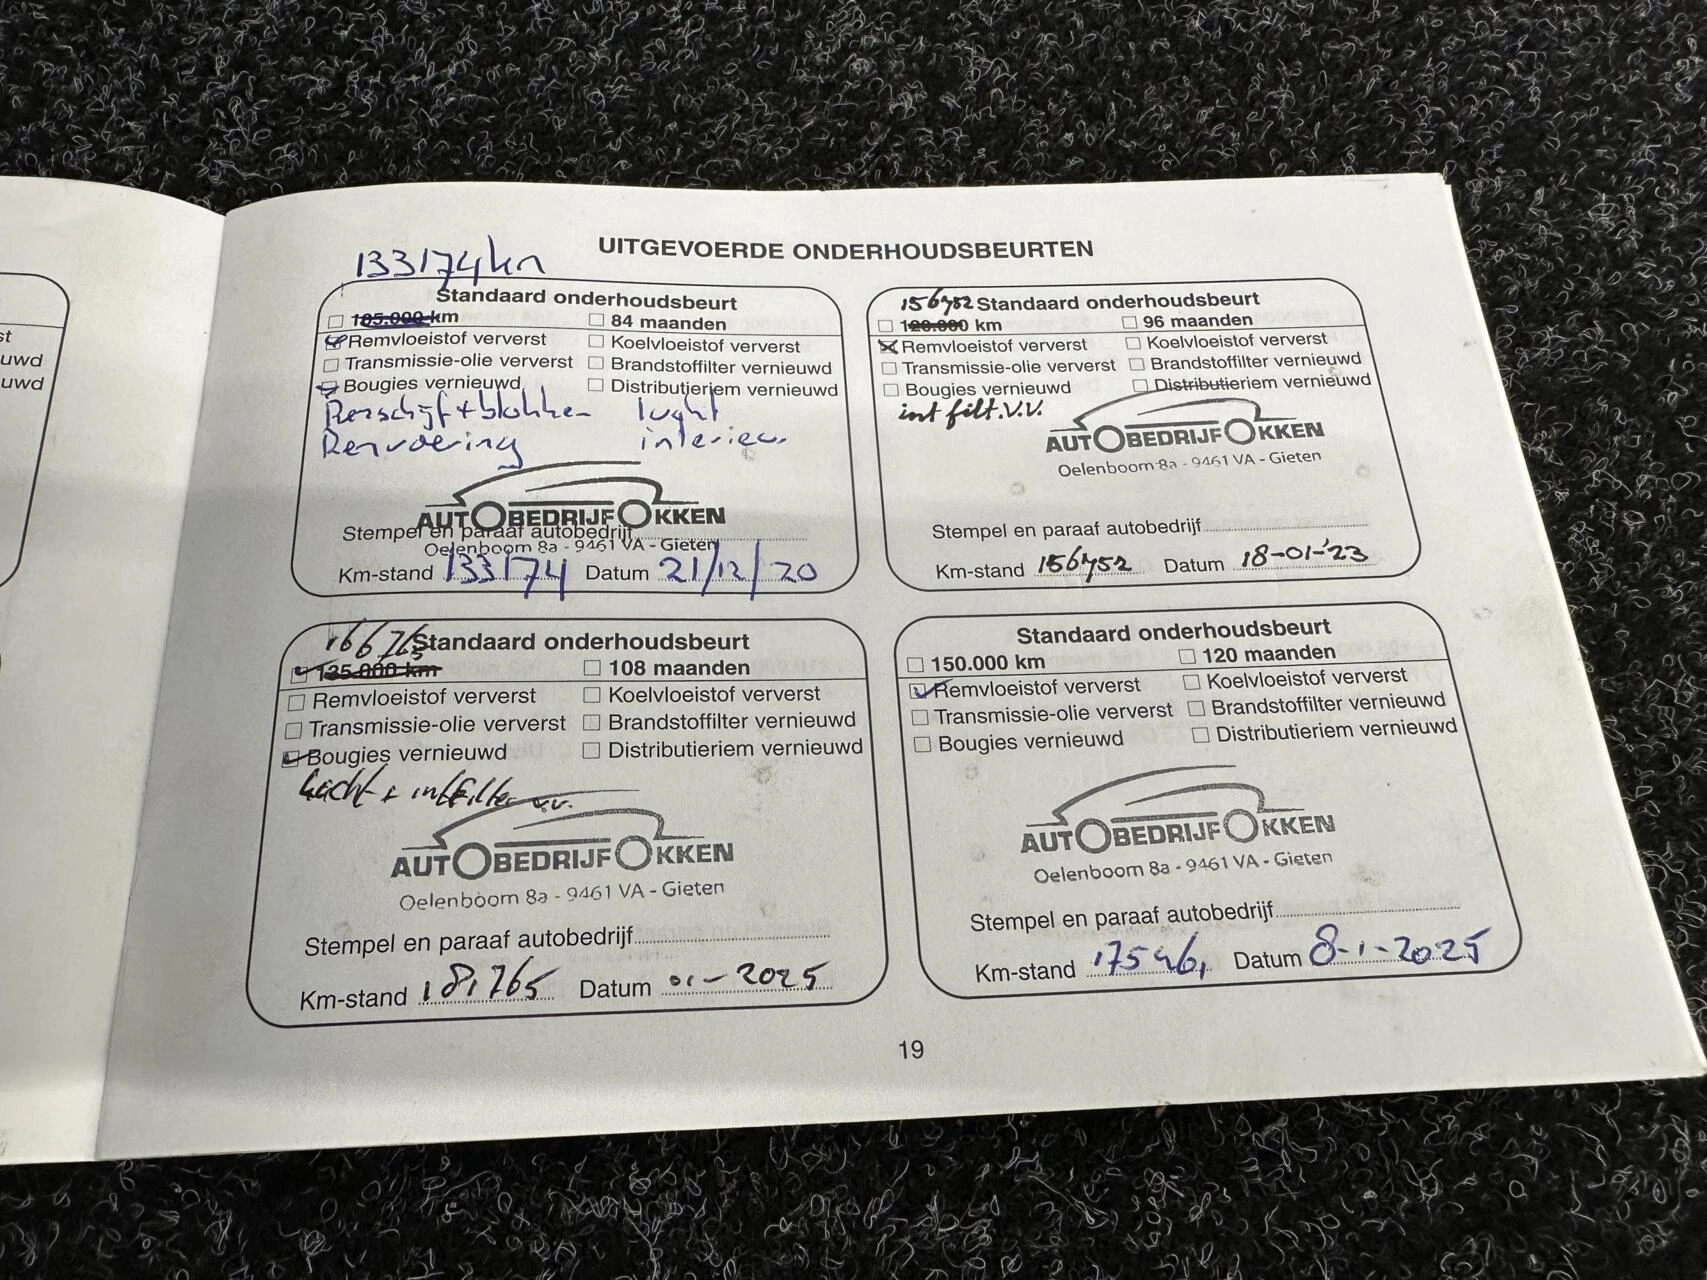 st
uwd
uwd
UITGEVOERDE ONDERHOUDSBEURTEN
133174km
Standaard onderhoudsbeurt
km
84 maanden
Remvloeistof ververst
Koelvloeistof ververst
Transmissie-olie ververst
Brandstoffilter vernieuwd
Bougies vernieuwd
Distributieriem vernieuwd
Remschijf + blokken
lught
Remvoering
interieur
AUTOBEDRIJF OKKEN
Stempel en paraaf autobedrijf
Oelenboom 8a - 9461 VA - Gieten
Km-stand 133174 Datum 21/12/20
156752 Standaard onderhoudsbeurt
120.000 km
96 maanden
Remvloeistof ververst
Koelvloeistof ververst
Transmissie-olie ververst
Brandstoffilter vernieuwd
Bougies vernieuwd
Distributieriem vernieuwd
int filt. v.v.
AUTOBEDRIJF OKKEN
Oelenboom 8a - 9461 VA - Gieten
Stempel en paraaf autobedrijf
Km-stand 156752 Datum 18-01-'23
Standaard onderhoudsbeurt
135.000 km
108 maanden
Remvloeistof ververst
Koelvloeistof ververst
Transmissie-olie ververst
Brandstoffilter vernieuwd
Bougies vernieuwd
Distributieriem vernieuwd
lucht + intfilter v.v.
AUTOBEDRIJF OKKEN
Oelenboom 8a - 9461 VA - Gieten
Stempel en paraaf autobedrijf
Km-stand 181765 Datum 01-2025
Standaard onderhoudsbeurt
150.000 km
120 maanden
Remvloeistof ververst
Koelvloeistof ververst
Transmissie-olie ververst
Brandstoffilter vernieuwd
Bougies vernieuwd
Distributieriem vernieuwd
AUTOBEDRIJF OKKEN
Oelenboom 8a - 9461 VA - Gieten
Stempel en paraaf autobedrijf
Km-stand Datum 8-1-2025
19